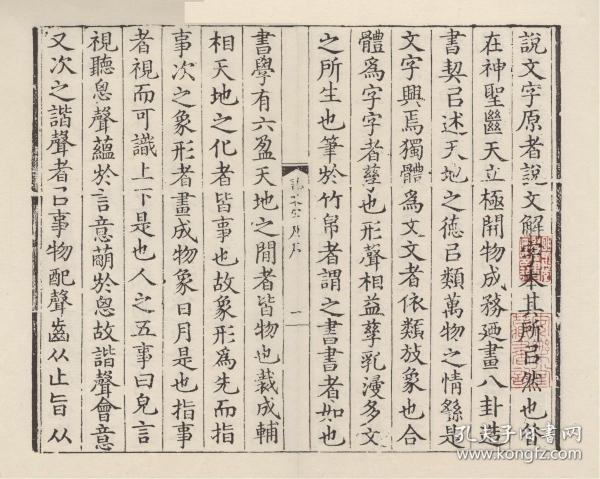 說文字原者說文解字本其所㠯然也昔
在神聖繼天立極開物成務廼畫八卦造
書契㠯述天地之德㠯類萬物之情繇是
文字興焉獨體爲文文者依類放象也合
體爲字字者孳也形聲相益孳乳漫多文
之所生也筆於竹帛者謂之書書者如也
說文字原序
一
書學有六盈天地之閒者皆物也裁成輔
相天地之化者皆事也故象形爲先而指
事次之象形者畫成物象日月是也指事
者視而可識上下是也人之五事曰皃言
視聽恖聲蘊於言意萌於恖故諧聲會意
又次之諧聲者㠯事物配聲齒从止旨从
孔夫子旧书网
kongfz.com